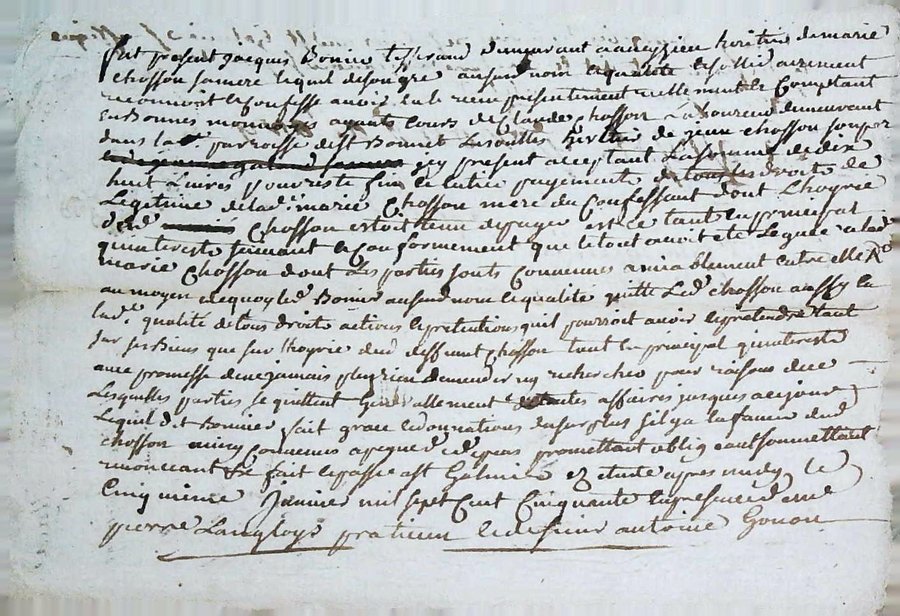 fut present jacques Bonier tisserand demeurant a aveyzieu heritier de marie
chosson sa mere lequel de son gre au susd nom et qualite et sollidairement
reconnoit et confesse avoir eu et receu presentement reellement et Comptant
en Bonnes monnoyes ayants Cours de Claude chosson Laboureur demeurant
dans la parroisse de st Bonnet Les oulles heritier de jean chosson son per
icy present acceptant La somme de dix
huit Livres pour reste fin et entier payement de tous les droits de
Legitime de lad. marie chosson mere du Confessant dont L'hoyrie
dud chosson estoit tenu de payer et ce tant en principal
qu'interests suivant et conformement que le tout avoit ete Legue a lad
marie chosson dont Les parties sont Convenues amiablement entre elle
au moyen de quoy led Bonier au susd nom et qualite quitte Led chosson aussy en
lad. qualite de tous droits actions et pretentions qu'il pourroit avoir et pretendre tant
sur ses Biens que sur l'hoyrie dud deffunt chosson tant en principal qu'interests
avec promesse de ne jamais plus rien demander ny rechercher pour raison de ce
Lesquelles parties se quittent Generallement de toutes affaires jusques a ce jour
Lequel d. Bonier fait grace et donnation du surplus s'il y a en faveur dud
chosson ainsy Convenus a peyne de d. depens promettant oblig eants soumettant
renonceant &c fait et passe a st Galmier Etude apres midy le
Cinquieme Janvier mil sept Cent Cinquante en presence de me
pierre Langloys praticien et de sieur antoine Gonon